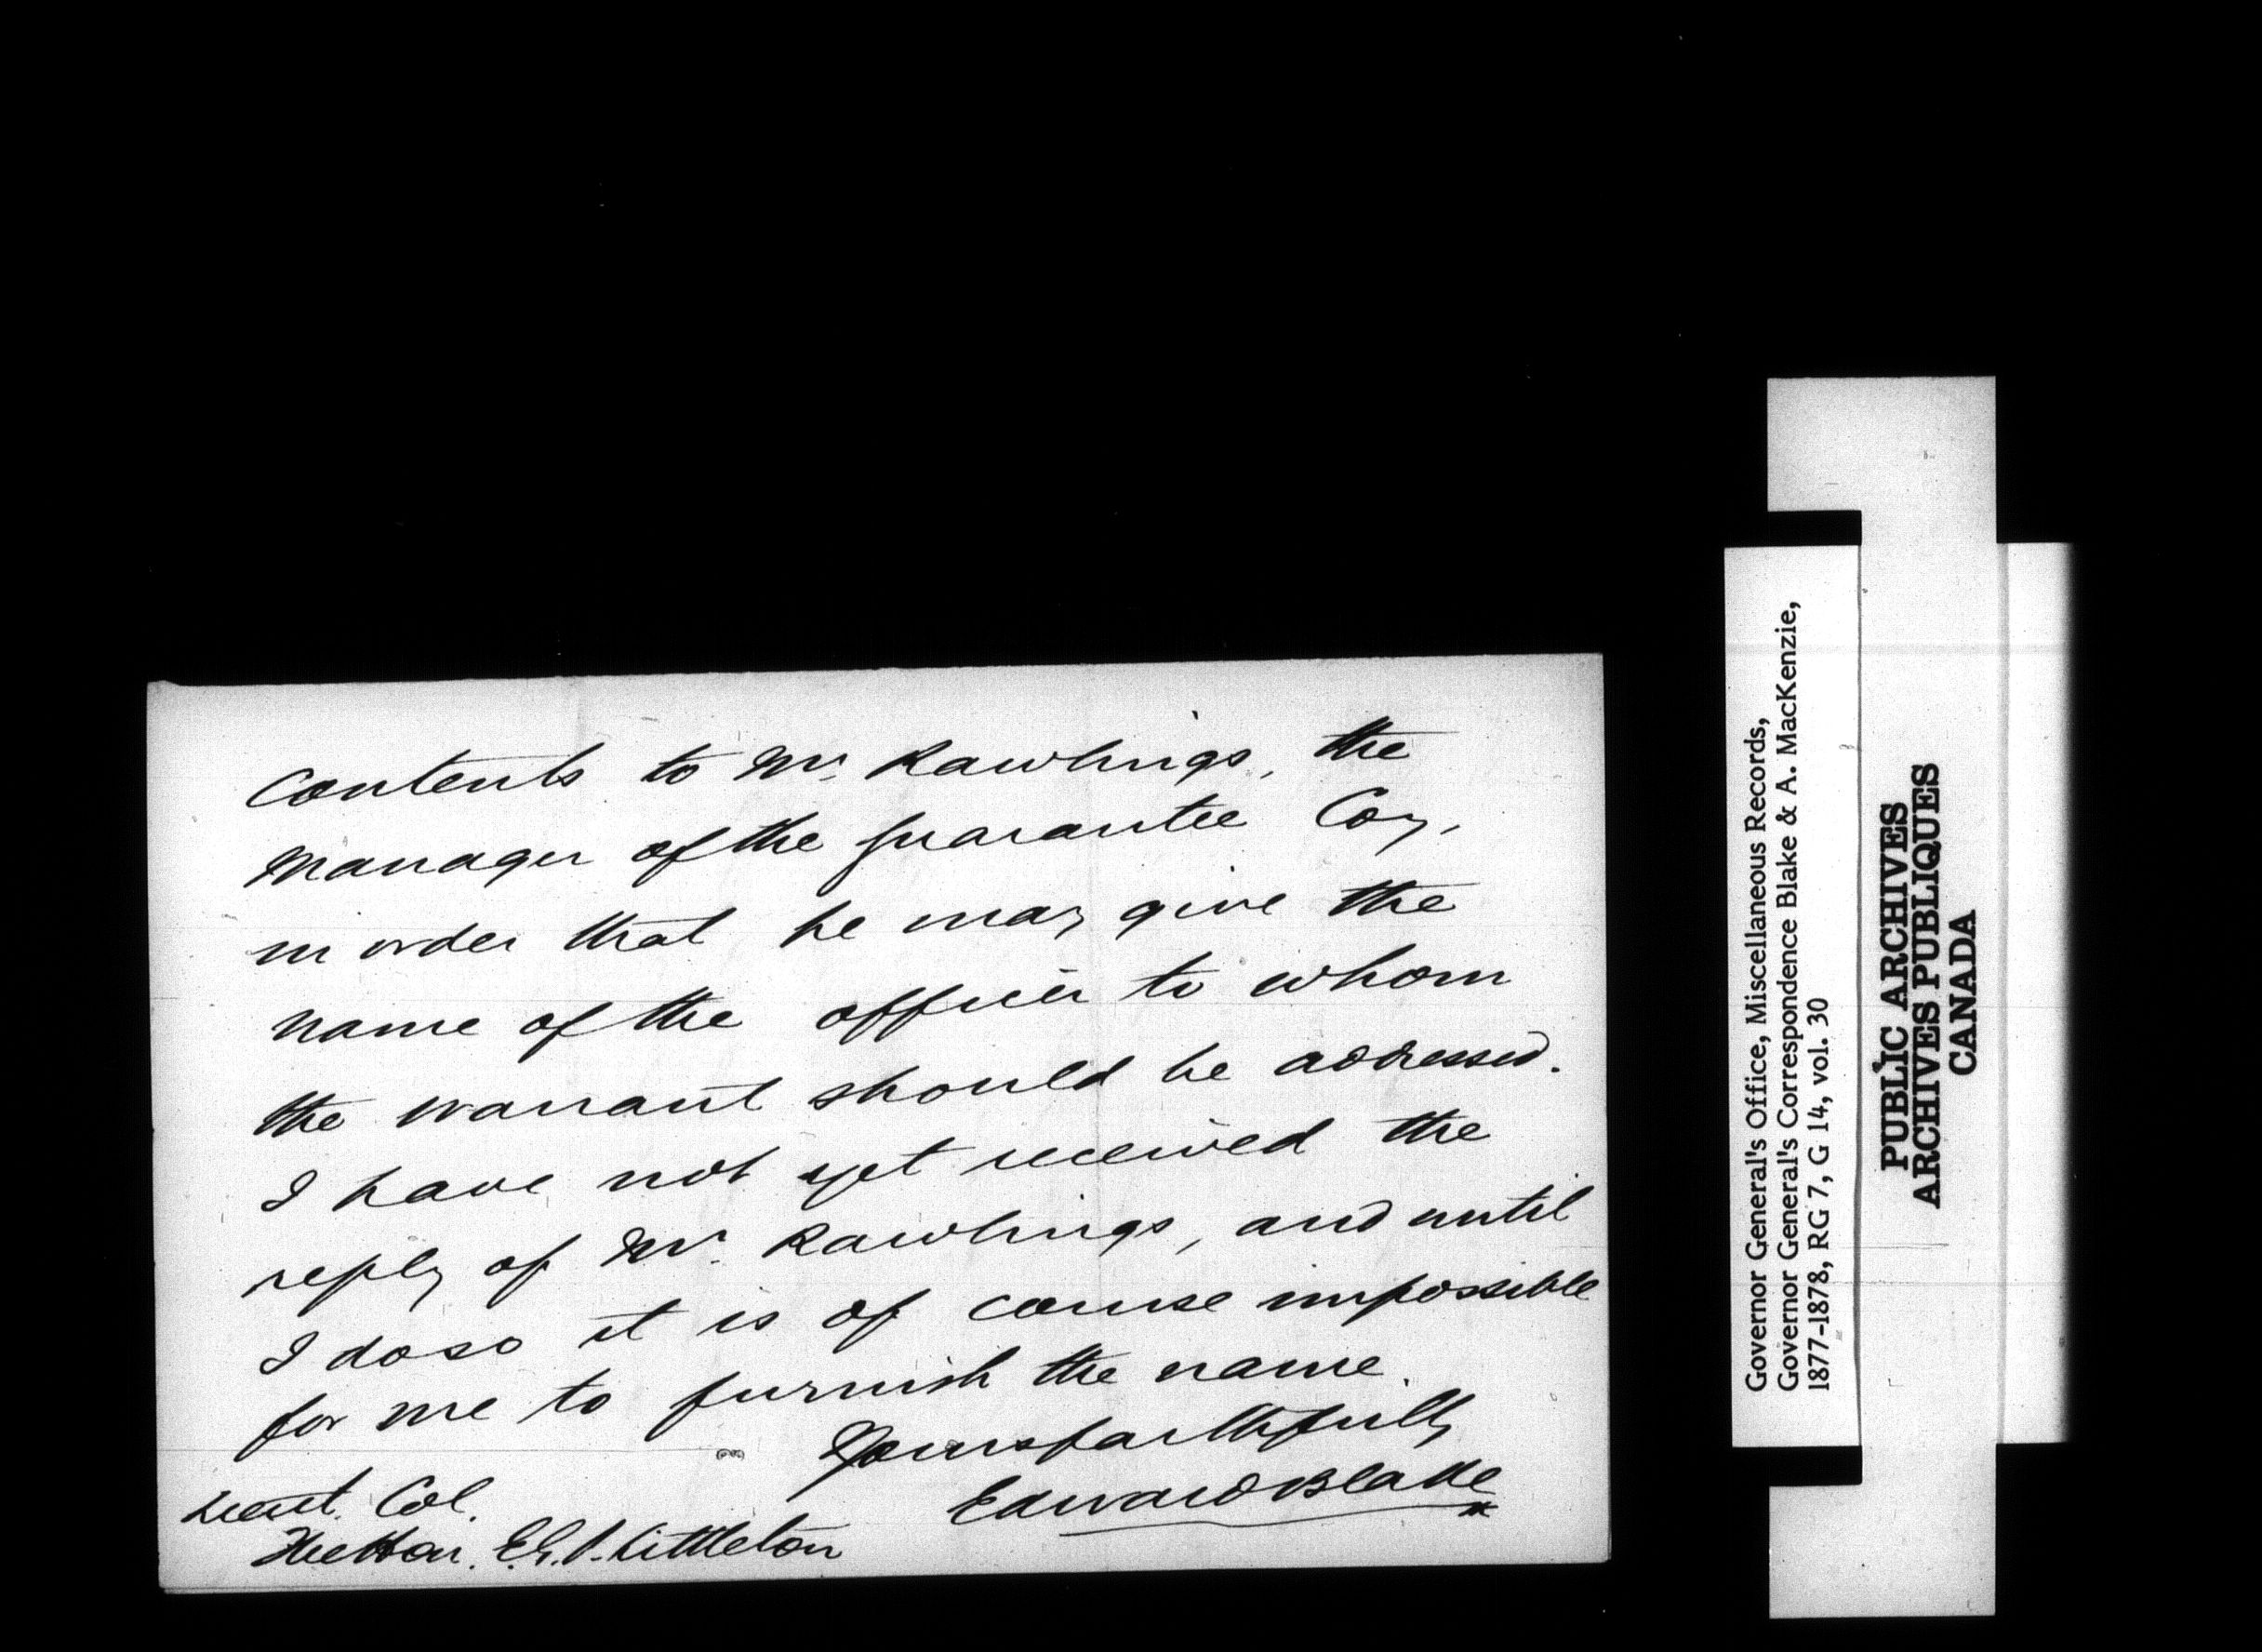 contents to Mr. Rawlings, the
Manager of the Guarantee Coy,
in order that he may give the
name of the officer to whom
the warrant should be addressed.
I have not yet received the
reply of Mr. Rawlings, and until
I do so it is of course impossible
for me to furnish the name.
Yours faithfully
Edward Blake
Lieut. Col.
The Hon. E.G.P. Littleton
Governor General's Office, Miscellaneous Records,
Governor General's Correspondence Blake & A. MacKenzie,
1877-1878, RG 7, G 14, vol. 30
PUBLIC ARCHIVES
ARCHIVES PUBLIQUES
CANADA